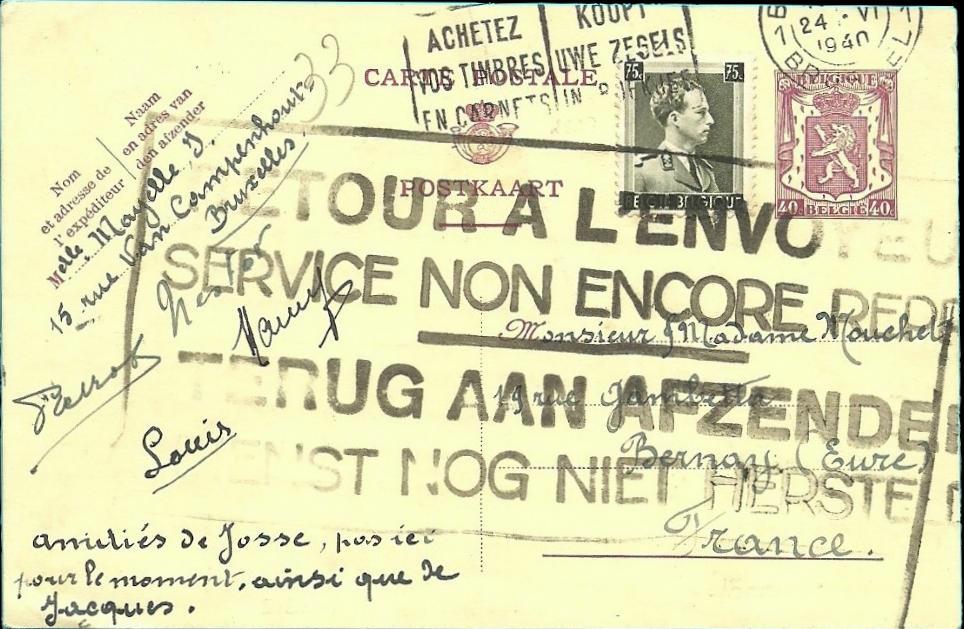 ACHETEZ
VOS TIMBRES
EN CARNETS
KOOPT
UWE ZEGELS
IN
24 VI
1940
1
1
CARTE POSTALE
POSTKAART
75c 75c
BELGIE BELGIQUE
BELGIQUE
40c BELGIE 40c
Nom
et adresse de
l'expéditeur
Naam
en adres van
den afzender
Melle Mayelle J.
15 rue Van Campenhout
Bruxelles
33
RETOUR A L'ENVOYEU
SERVICE NON ENCORE
TERUG AAN AFZENDE
DIENST NOG NIET HERSTE
Monsieur Madame Mouchel
19 rue Gambetta
Bernay (Eure)
France.
Nester
Pierrot
Louis
amitiés de Josse, pas ici
pour le moment, ainsi que de
Jacques.